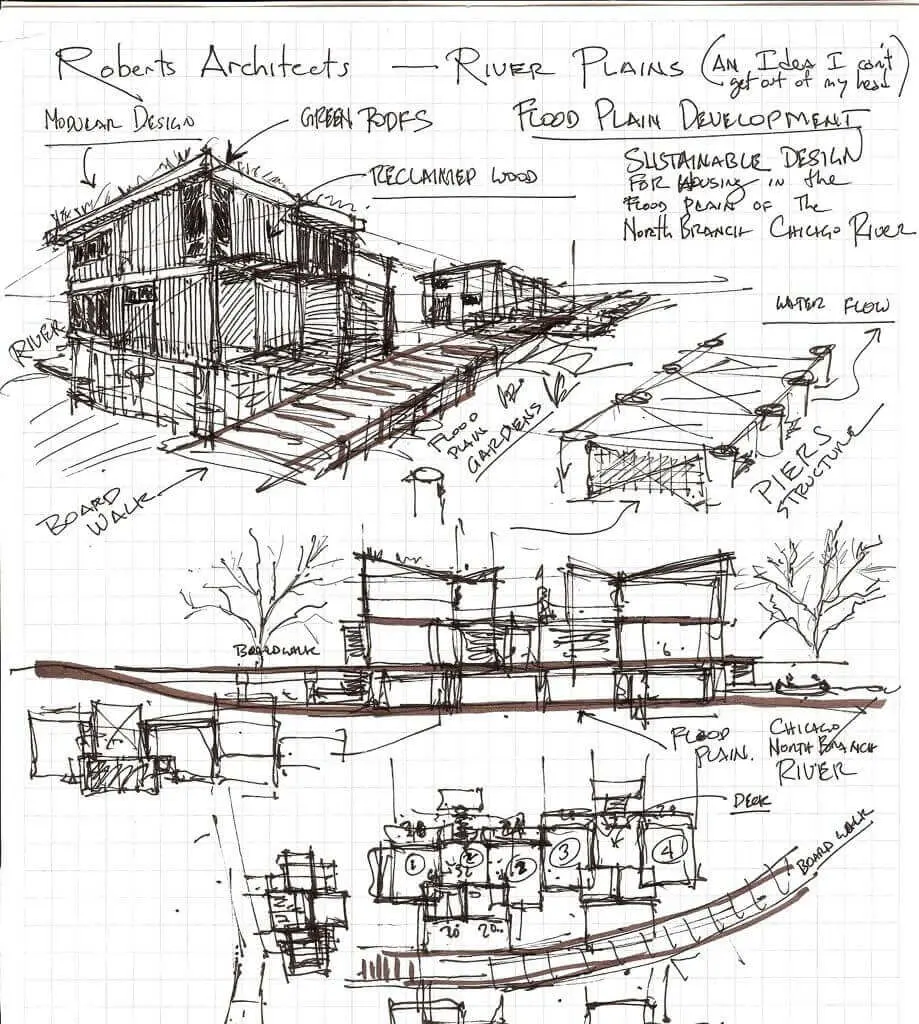 Roberts Architects — River Plains (An Idea I can't
get out of my head)
Modular Design
Green Roofs
Flood Plain Development
Reclaimed Wood
Sustainable Design
for Housing in the
Flood Plain of the
North Branch Chicago River
Water Flow
River
Flood
Plain
Gardens
Piers
Structure
Board
Walk
Boardwalk
6
Flood
Plain.
Chicago
North Branch
River
Deck
Board Walk
1
2
2
3
4
20
20